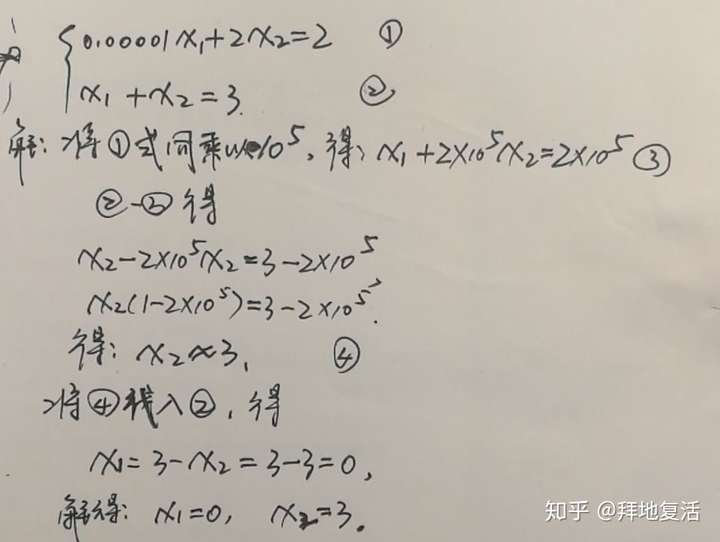 {0.00001x₁+2x₂=2 ①
x₁+x₂=3. ②
解:将①式同乘以10⁵,得:x₁+2×10⁵x₂=2×10⁵ ③
②-③得
x₂-2×10⁵x₂=3-2×10⁵
x₂(1-2×10⁵)=3-2×10⁵.
得:x₂≈3, ④
将④代入②,得
x₁=3-x₂=3-3=0,
解得:x₁=0, x₂=3.
知乎 @拜地复活